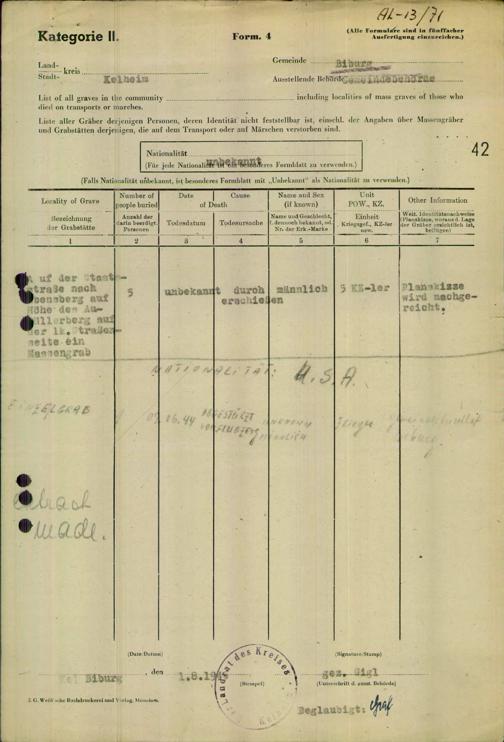 AL-13/71
Kategorie II.
Form. 4
(Alle Formulare sind in fünffacher
Ausfertigung einzureichen.)
Land-
Stadt- kreis Kelheim
Gemeinde Biburg
Ausstellende Behörde Gemeindebehörde
List of all graves in the community including localities of mass graves of those who
died on transports or marches.
Liste aller Gräber derjenigen Personen, deren Identität nicht feststellbar ist, einschl. der Angaben über Massengräber
und Grabstätten derjenigen, die auf dem Transport oder auf Märschen verstorben sind.
42
Nationalität unbekannt
(Für jede Nationalität ist ein besonderes Formblatt zu verwenden.)
(Falls Nationalität unbekannt, ist besonderes Formblatt mit „Unbekannt" als Nationalität zu verwenden.)
Locality of Grave
Bezeichnung
der Grabstätte
1
Number of
people buried
Anzahl der
darin beerdigt.
Personen
2
Date
of Death
Todesdatum
3
Cause
Todesursache
4
Name and Sex
(if known)
Name und Geschlecht,
f. dennoch bekannt, od.
Nr. der Erk.-Marke
5
Unit
POW., KZ.
Einheit
Kriegsgef., KZ-ler
usw.
6
Other Information
Weit. Identitätsnachweise
(Planskizze, woraus d. Lage
der Gräber ersichtlich ist,
beifügen)
7
auf der Staat-
straße nach
auf
Höhe des Au-
auf
der lk. Straßen-
seite ein
Massengrab
5
unbekannt
durch
erschießen
männlich
5 KZ-ler
Planskizze
wird nachge-
reicht.
NATIONALITÄT: U.S.A.
EINZELGRAB
1
09.06.44
ABGESTÜRZT
männlich
Flieger
made.
(Date/Datum)
(Signature/Stamp)
Biburg, den 1.8.194
gez. Sigl
(Stempel)
(Unterschrift d. ausst. Behörde)
Landrat des Kreises
J. G. Weiß'sche Buchdruckerei und Verlag, München.
Beglaubigt: Graf